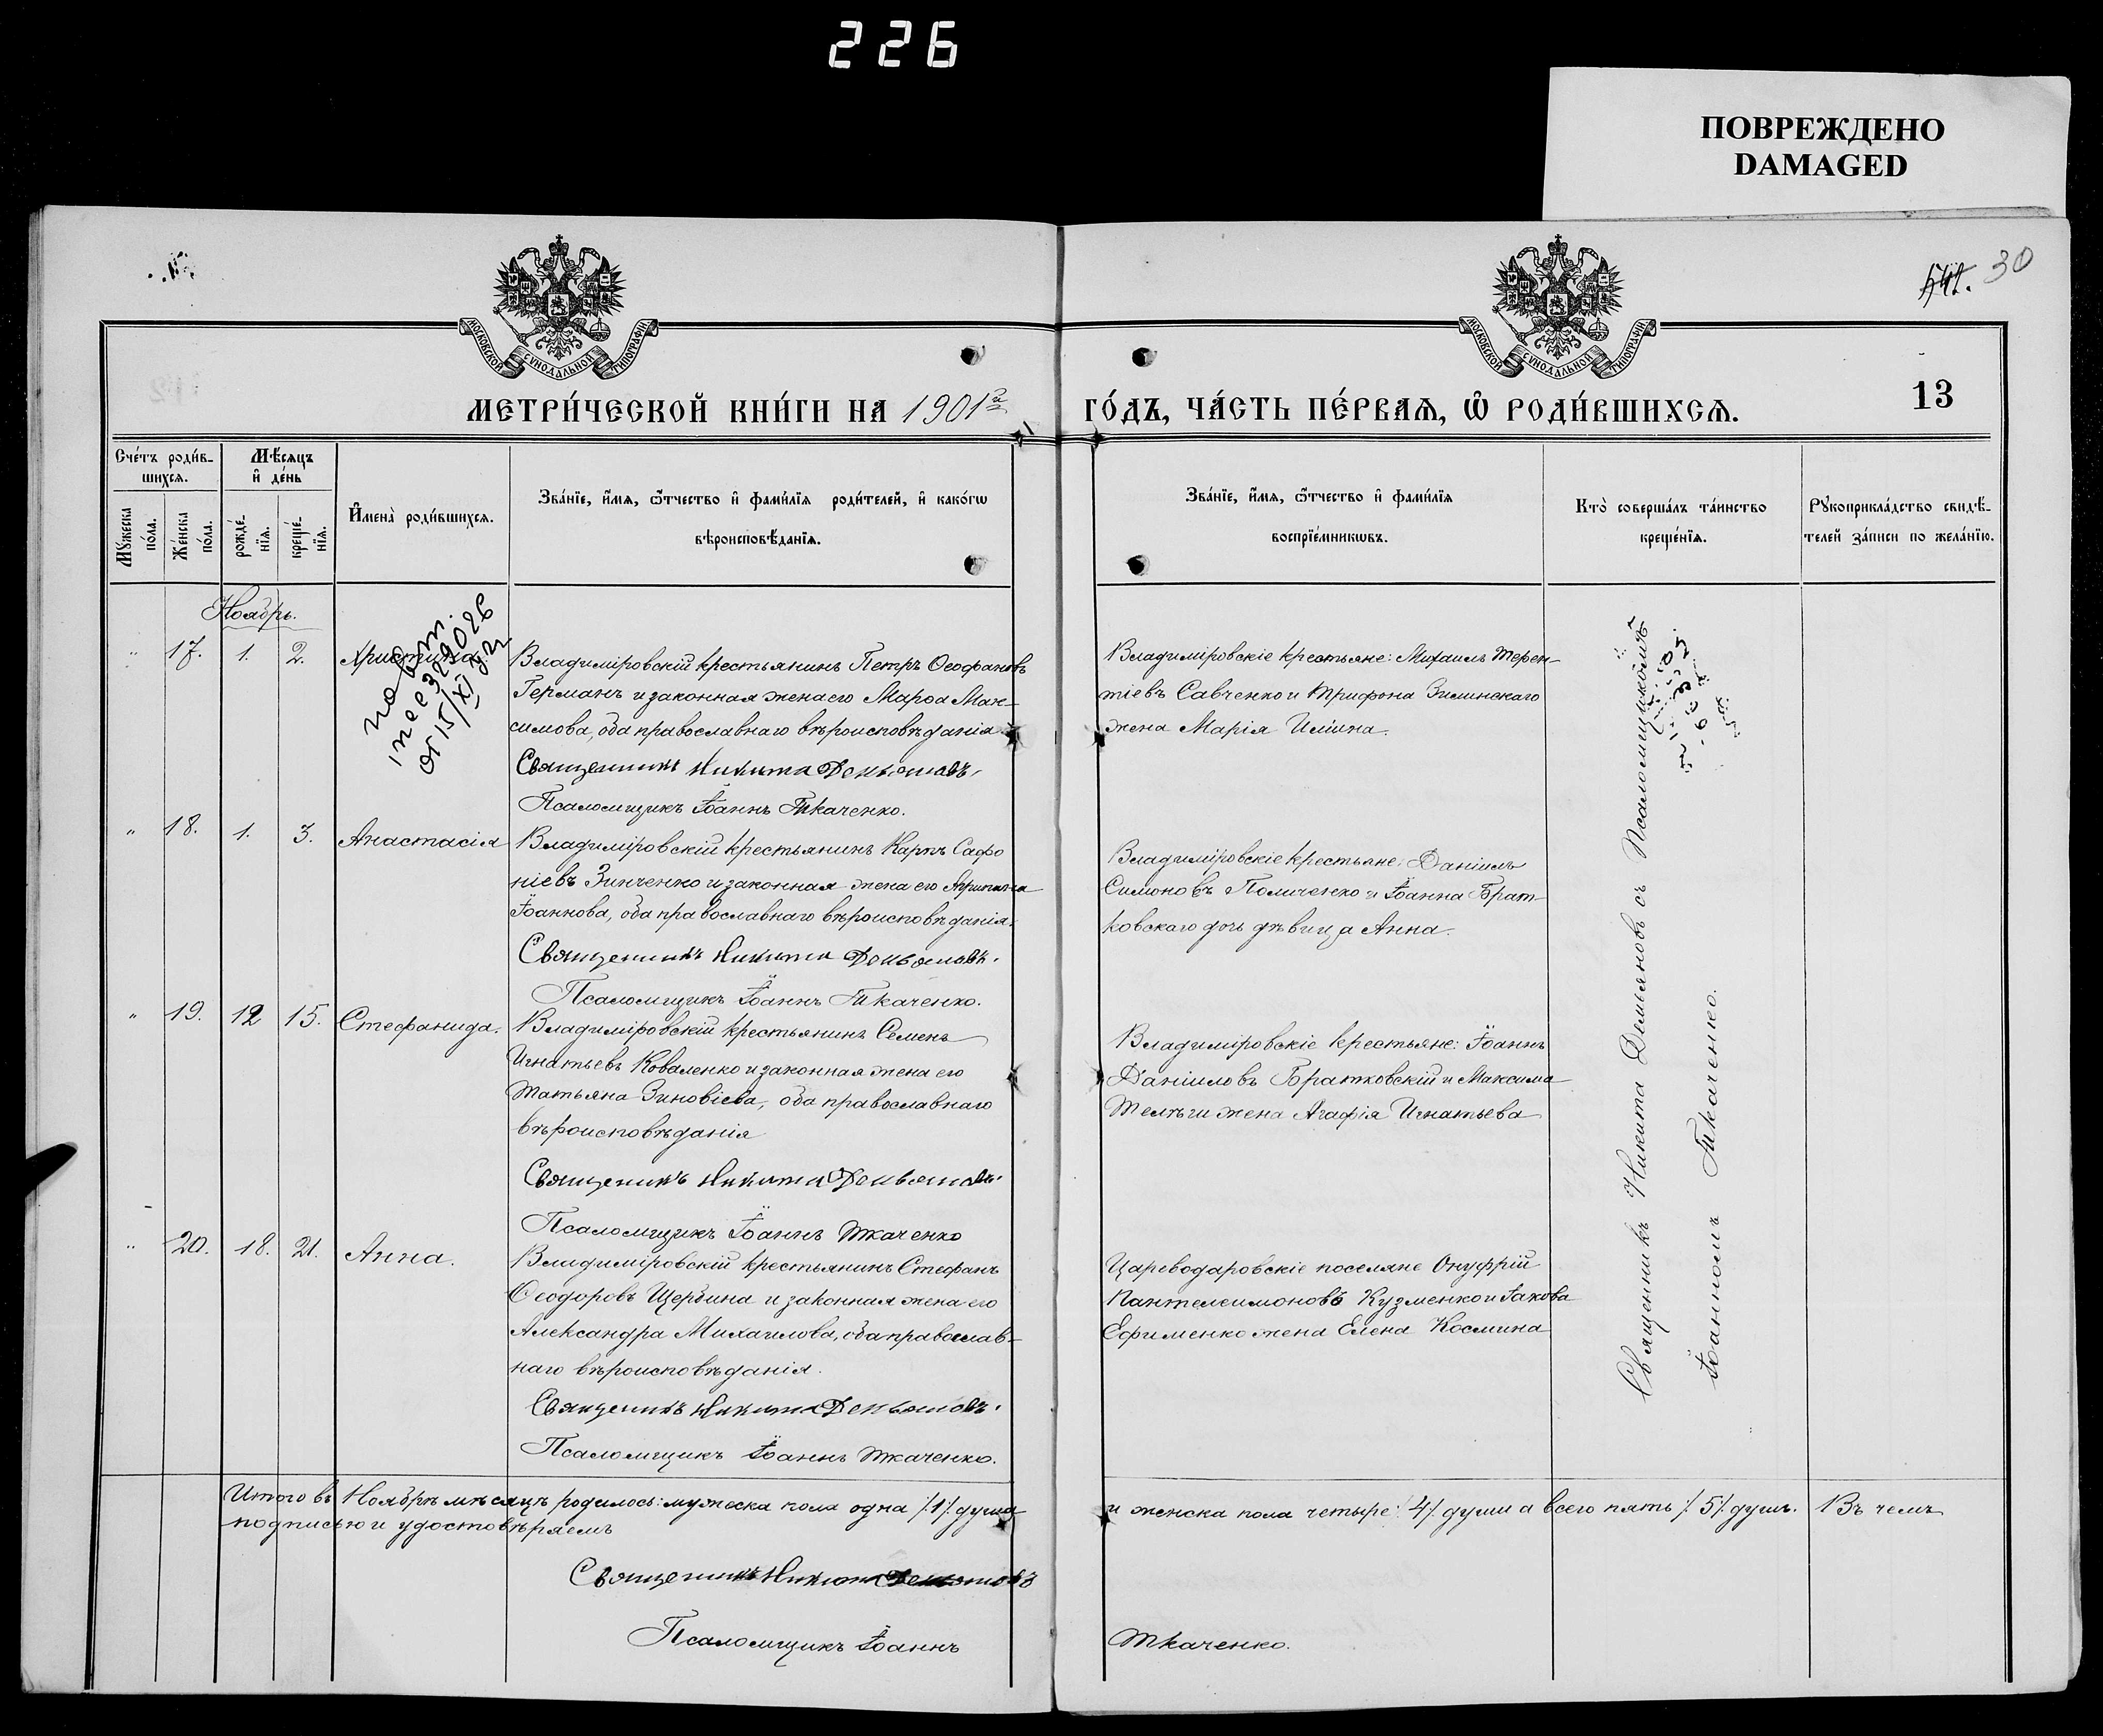 226
ПОВРЕЖДЕНО
DAMAGED
30
МОСКОВСКОЙ СУНОДАЛЬНОЙ ТИПОГРАФІИ
МОСКОВСКОЙ СУНОДАЛЬНОЙ ТИПОГРАФІИ
МЕТРИ́ЧЕСКОЙ КНИ́ГИ НА 1901й
ГО́ДЪ, ЧА́СТЬ ПЕ́РВАѦ, Ѡ РОДИ́ВШИХСѦ.
13
Сче́тъ роди́в-
шихсѧ.
Мѣ́сѧцъ
и де́нь
Мꙋ́жеска
по́ла.
Же́нска
по́ла.
рожде́-
нїѧ.
креще́-
нїѧ.
Имена̀ роди́вшихсѧ.
Зва́нїе, и́мѧ, ѻ́тчество и фами́лїѧ роди́телей, и како́гѡ
вѣроисповѣ́данїѧ.
Зва́нїе, и́мѧ, ѻ́тчество и фами́лїѧ
воспрїе́мникѡвъ.
Кто̀ соверша́лъ та́инство
креще́нїѧ.
Рꙋкоприкла́дство свидѣ́-
телей за́писи по жела́нїю.
Ноябрь.
" 17. 1. 2. Христина
Владиміровскій крестьянинъ Петръ Ѳеофановъ
Германъ и законная жена его Марѳа Мак-
симова, оба православнаго вѣроисповѣданія
Священникъ Никита Демьяновъ.
Псаломщикъ Іоаннъ Ткаченко.
Владиміровскіе крестьяне: Михаилъ Терен-
тіевъ Савченко и Трифона Зилинскаго
жена Марія Иліина.
" 18. 1. 3. Анастасія
Владиміровскій крестьянинъ Карпъ Сафо
ніевъ Зинченко и законная жена его Агрипина
Іоаннова, оба православнаго вѣроисповѣданія.
Священникъ Никита Демьяновъ.
Псаломщикъ Іоаннъ Ткаченко.
Владиміровскіе крестьяне: Даніилъ
Симоновъ и Іоанна Брат-
ковскаго дочь дѣвица Анна.
" 19. 12 15. Стефанида.
Владиміровскій крестьянинъ Семенъ
Игнатьевъ Коваленко и законная жена его
Татьяна Зиновіева, оба православнаго
вѣроисповѣданія
Священникъ Никита Демьяновъ.
Псаломщикъ Іоаннъ Ткаченко
Владиміровскіе крестьяне: Іоаннъ
Даніиловъ Братковскій и Максима
Телѣги жена Агафія Игнатьева
" 20. 18. 21. Анна.
Владиміровскій крестьянинъ Стефанъ
Ѳеодоровъ Щербина и законная жена его
Александра Михаилова, оба православ-
наго вѣроисповѣданія.
Священникъ Никита Демьяновъ.
Псаломщикъ Іоаннъ Ткаченко.
Цареводаровскіе поселяне Онуфрій
Пантелеимоновъ Кузменко и Іакова
Ефименко жена Елена Космина
Священникъ Никита Демьяновъ съ Псаломщикомъ
Іоанномъ Ткаченко.
Итого въ Ноябрѣ мѣсяцѣ родилось: мужеска пола одна /1/ душа
и женска пола четыре /4/ души а всего пять /5/ душъ. Въ чемъ
подписью и удостовѣряемъ
Священникъ Никита Демьяновъ
Псаломщикъ Іоаннъ
Ткаченко.